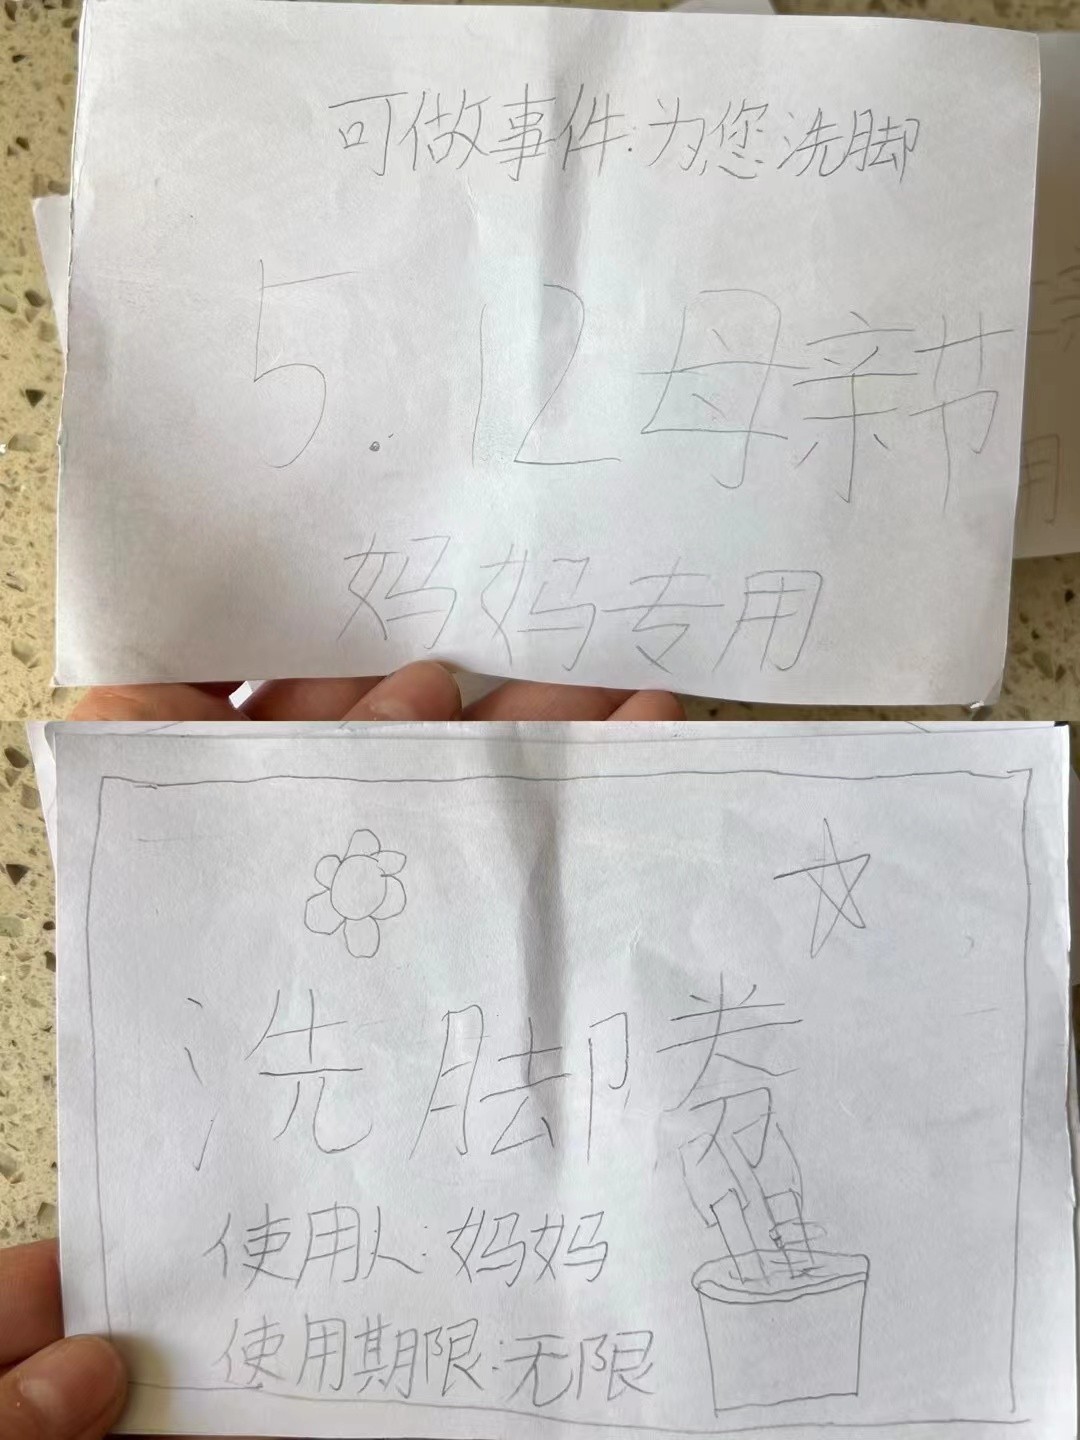 可做事件:为您洗脚
5.12母亲节
妈妈专用
洗脚券
使用人:妈妈
使用期限:无限